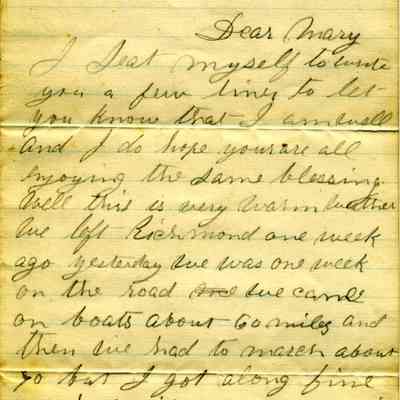 Dear Mary
I seat myself to write
you a few lines to let
you know that I am well
and I do hope you are all
injoying the same blessing
Well this is very warm weather
We left Richmond one week
ago yesterday we was one week
on the road we came
on boats about 60 miles and
then we had to march about
70 but I got along fine